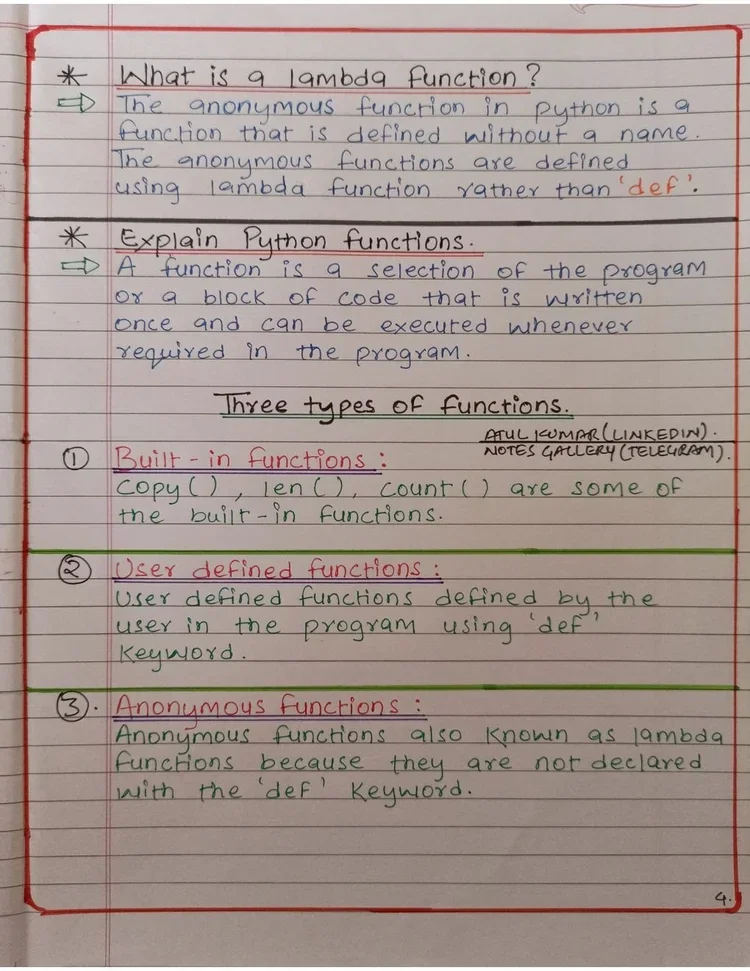 * What is a lambda function?
⇨ The anonymous function in python is a
function that is defined without a name.
The anonymous functions are defined
using lambda function rather than 'def'.
* Explain Python functions.
⇨ A function is a selection of the program
or a block of code that is written
once and can be executed whenever
required in the program.
Three types of functions.
ATUL KUMAR (LINKEDIN).
NOTES GALLERY (TELEGRAM).
① Built-in functions :
copy( ) , len( ), count( ) are some of
the built-in functions.
② User defined functions :
User defined functions defined by the
user in the program using 'def'
keyword.
③. Anonymous functions :
Anonymous functions also known as lambda
functions because they are not declared
with the 'def' keyword.
4.